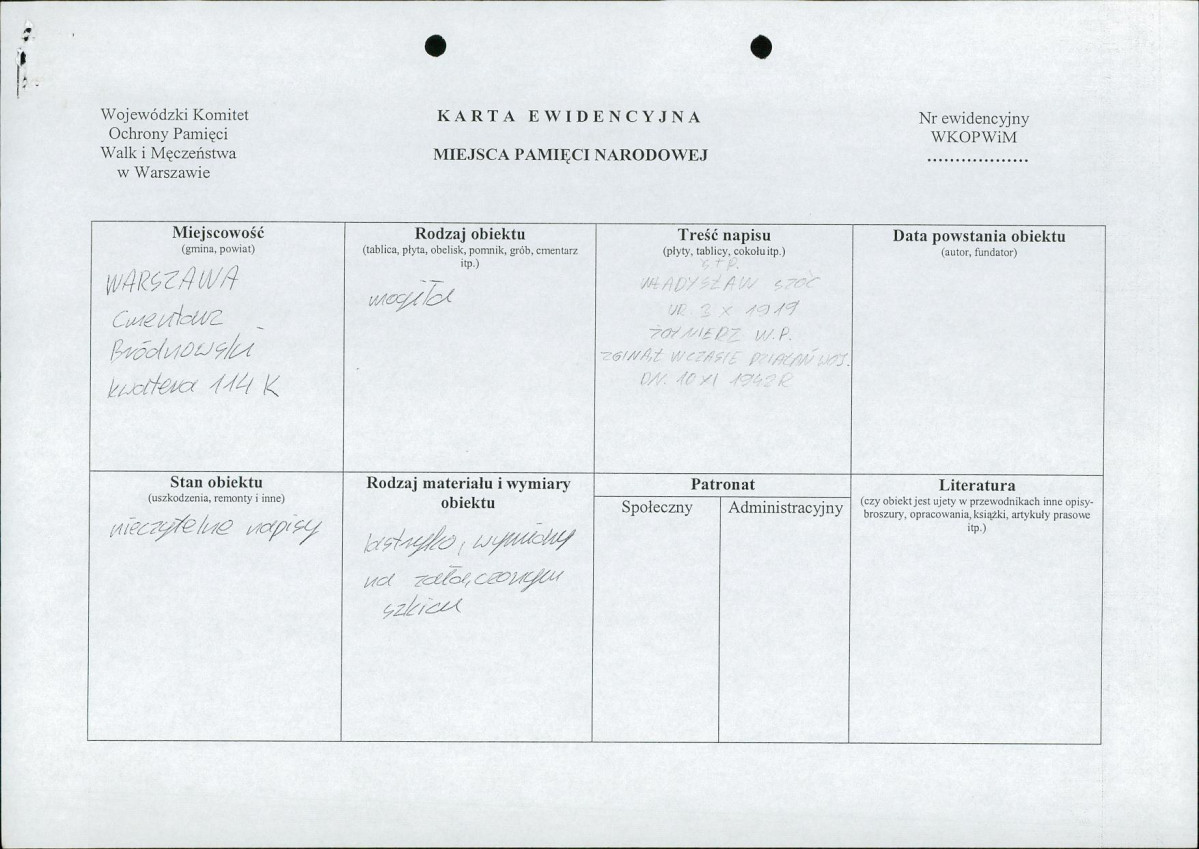 Wojewódzki Komitet
Ochrony Pamięci
Walk i Męczeństwa
w Warszawie
KARTA EWIDENCYJNA
MIEJSCA PAMIĘCI NARODOWEJ
Nr ewidencyjny
WKOPWiM
..................
Miejscowość
(gmina, powiat)
WARSZAWA
Cmentarz
Bródnowski
kwatera 114 K
Rodzaj obiektu
(tablica, płyta, obelisk, pomnik, grób, cmentarz
itp.)
mogiła
Treść napisu
(płyty, tablicy, cokołu itp.)
Ś + P.
WŁADYSŁAW
UR 3 X 1919
ŻOŁNIERZ W.P.
ZGINĄŁ W CZASIE DZIAŁAŃ WOJ.
DN. 10 XI 1942 R
Data powstania obiektu
(autor, fundator)
Stan obiektu
(uszkodzenia, remonty i inne)
nieczytelne napisy
Rodzaj materiału i wymiary
obiektu
lastryko, wymiary
na załączonym
szkicu
Patronat
Społeczny
Administracyjny
Literatura
(czy obiekt jest ujety w przewodnikach inne opisy-
broszury, opracowania, książki, artykuły prasowe
itp.)